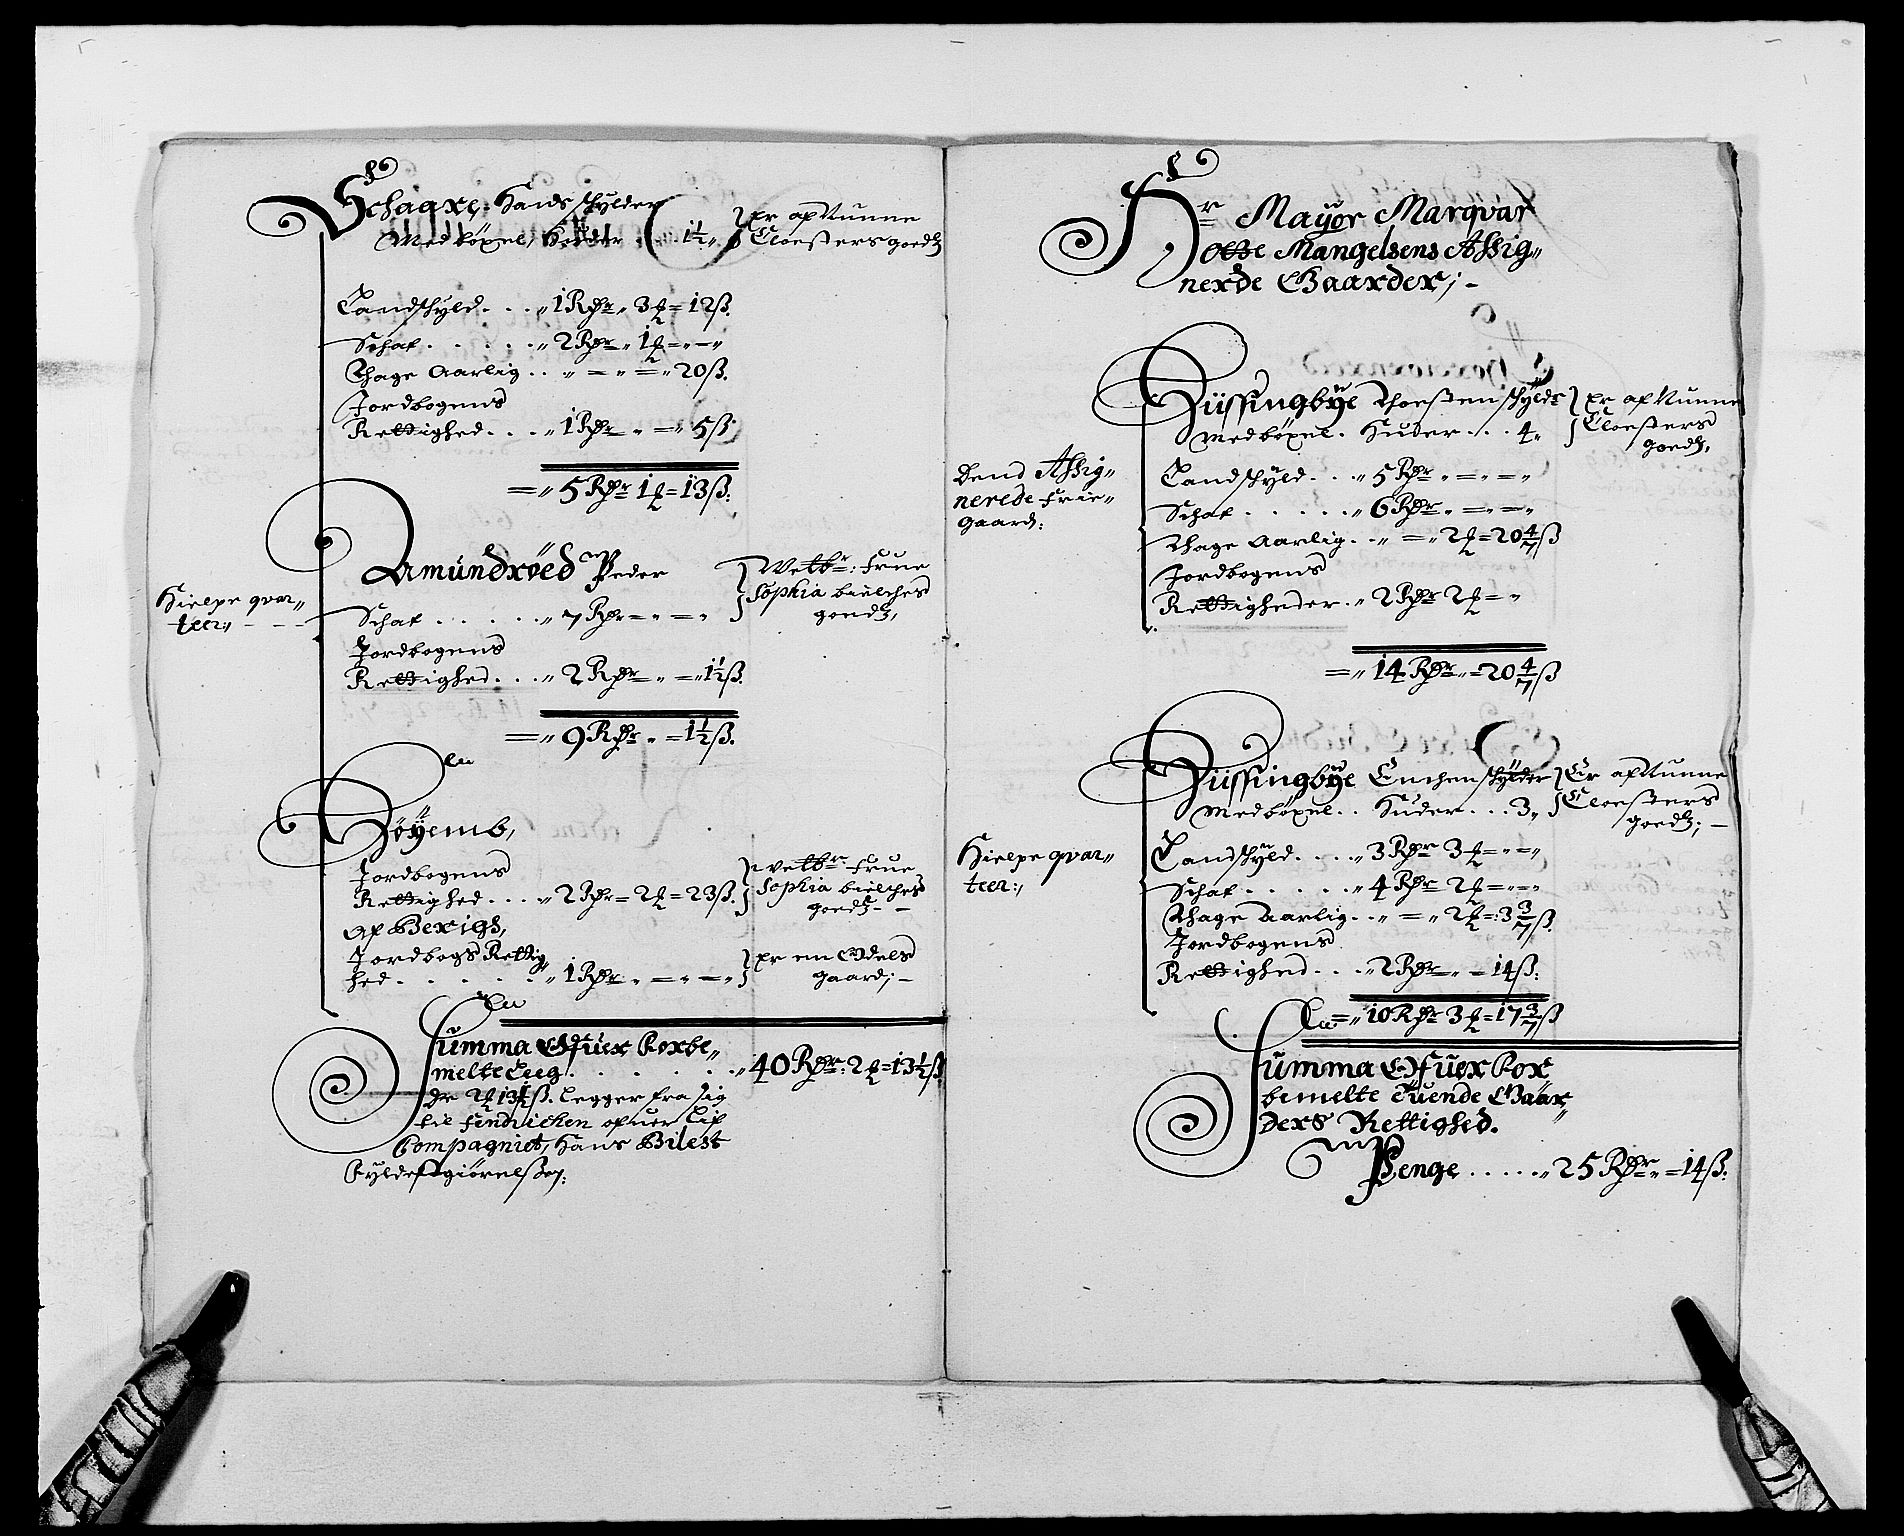 Schaare, Hands skylder
Medböxel, Hudder . . 1½ „ Er af Nunne
Cloesters goedz
Landskyld . . . „ 1 Rdr „ 3 ₰ = 12 ß.
Schat . . . . . „ 2 Rdr „ 1 ₰ = „ — „
Thage Aarlig . . „ = „ = „ 20 ß.
Jordbogens
Rettighed . . . „ 1 Rdr „ = „ 5 ß.
= „ 5 Rdr 1 ₰ = 13 ß:
Hielpe qvar„
teer:,
Amundröed Peder
Welb: Frue
Sophia bielches
goedz,
Schat . . . . . „ 7 Rdr = „ = „
Jordbogens
Rettighed . . . „ 2 Rdr „ = „ 1½ ß.
= „ 9 Rdr „ = 1½ ß.
En
Höyemb,
Jordbogens
Rettighed . . . „ 2 Rdr = 2 ₰ = 23 ß.
Welb: Frue
Sophia bielches
goedz - -
Af Berigs,
Jordbogs Rettig„
hed . . . . . „ 1 Rdr „ = „ = „
Er en Odels
gaard; -
Summa Ofuer Forbe„
melte Leeg . . . . . . „ 40 Rdr: 2 ₰ = 13½ ß
Dr 2 ₰ 13½ ß. Legger fra sig
til Fendrichen ofuer Lif
Compagniet, Hans Bilest
Fyldestgiörelsse;
Hr Mayor Marqvar
Otte Mangelsens Assig„
nerde Gaarder; -
Dend Assig„
nerede Frie„
gaard;
Züssingbÿe Thoesten skylder
Med böxel . Huder . . . 4 „
Er af Nunne
Cloesters
goedz,
Landskyld . . . „ 5 Rdr „ = „ = „
Schat . . . . . „ 6 Rdr „ = „ = „
Thage Aarlig . . „ = „ 2 ₰ = 20 4/7 ß
Jordbogens
Rettigheder . „ 2 Rdr 2 ₰ = „
= „ 14 Rdr „ = 20 4/7 ß
Hielpe qvar„
teer:,
Züssingbÿe Enchen skylder
Med böxel . . Huder . . . 3 „
Er af Nunne
Cloesters
goedz; -
Landskÿld . . . . „ 3 Rdr 3 ₰ = „ = „
Schat . . . . . „ 4 Rdr 2 ₰ = „ = „
Thage Aarlig . . „ = „ 2 ₰ = 3 3/7 ß.
Jordbogens
Rettighed . . . „ 2 Rdr „ = 14 ß:
= „ 10 Rdr 3 ₰ = 17 3/7 ß
Summa Ofuer For
bemelte Tuende Gaar„
ders Rettighed.
Penge . . . . . „ 25 Rdr „ = 14 ß: